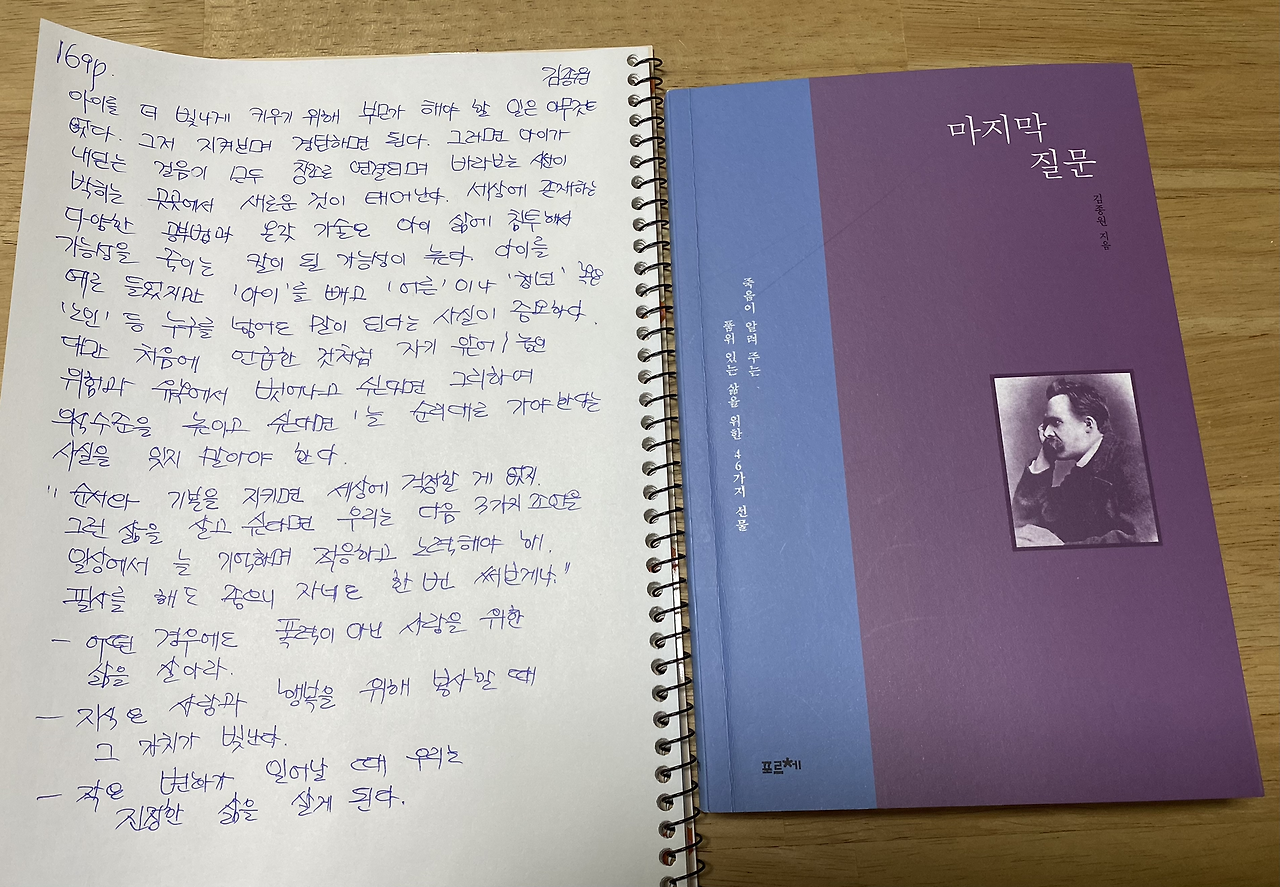 169p.
김종원
아이를 더 빛나게 키우기 위해 부모가 해야 할 일은 아무것도
없다. 그저 지켜보며 경탄하면 된다. 그러면 아이가
내딛는 걸음이 모두 창조로 연결되며 바라보는 시선이
박히는 곳곳에서 새로운 것이 태어난다. 세상에 존재하는
다양한 공부법과 온갖 기술은 아이 삶에 침투해서
가능성을 죽이는 칼이 될 가능성이 높다. 아이를
예로 들었지만 '아이'를 빼고 '어른'이나 '청년' 혹은
'노인' 등 누구를 넣어도 말이 된다는 사실이 중요하다.
다만 처음에 언급한 것처럼 자기 앞에 놓인
위험과 유혹에서 벗어나고 싶다면 그리하여
의식수준을 높이고 싶다면 '늘 순리대로 가야 한다는
사실을 잊지 말아야 한다.
"순서와 기본을 지키면 세상에 걱정할 게 없지.
그런 삶을 살고 싶다면 우리는 다음 3가지 조언을
일상에서 늘 기억하며 적응하고 노력해야 해.
필사를 해도 좋으니 자네도 한 번 써보게나."
- 어떤 경우에도 폭력이 아닌 사랑을 위한
삶을 살아라.
- 지식은 사랑과 행복을 위해 봉사할 때
그 가치가 빛난다.
- 작은 변화가 일어날 때 우리는
진정한 삶을 살게 된다.
마지막
질문
김종원 지음
죽음이 알려 주는,
품위 있는 삶을 위한 46가지 선물
포르체